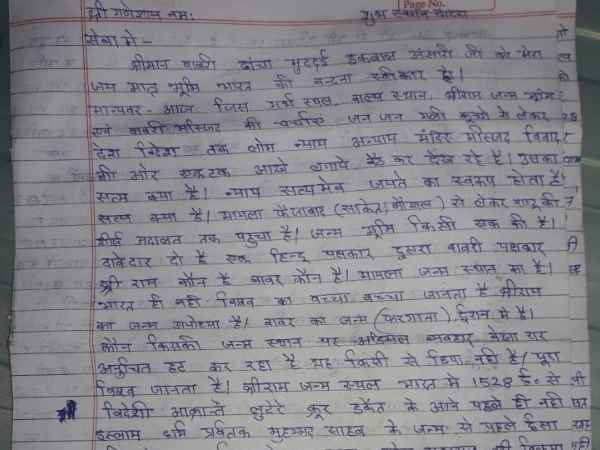 श्री गणेशाय नमः
Page No.
सेवा मे -
श्रीमान बाबरी ढांचा मुद्दई इकबाल अंसारी जी को मेरा
जन्म मातृ भूमि भारत की वन्दना स्वीकार हो।
मान्यवर - आज जिस गर्भ स्थल, बाल्य स्थान, श्रीराम जन्म भूमि
एवं बाबरी मस्जिद की चर्चाएं जन जन गली कूचों से लेकर
देश विदेश तक लोग न्याय अन्याय मंदिर मस्जिद विवाद
की ओर एकटक आखें लगाये बैठ कर देख रहे है। उसका
सत्य क्या है। न्याय सत्यमेव जयते का स्वरूप होता है।
सत्य क्या है। मामला फैजाबाद (साकेत, कौशल) से लेकर
शीर्ष अदालत तक पहुचा है। जन्म भूमि किसी एक की है।
दावेदार दो है एक हिन्दू पक्षकार दुसरा बाबरी पक्षकार
श्री राम कौन है बाबर कौन है। मामला जन्म स्थान का है।
भारत ही नहीं विश्व का बच्चा बच्चा जानता है श्रीराम
का जन्म अयोध्या है। बाबर का जन्म (फरगाना) ईरान मे है।
कौन किसकी जन्म स्थान पर अड़ियल व्यवहार
अनुचित हट कर रहा है यह किसी से छिपा नही है। पूरा
विश्व जानता है। श्रीराम जन्म स्थल भारत मे 1528 ई. से
विदेशी आक्रान्ता लुटेरे क्रूर डकैत के आने पहले ही नही
इस्लाम धर्म प्रवर्तक मुहम्मद साहब के जन्म से पहले